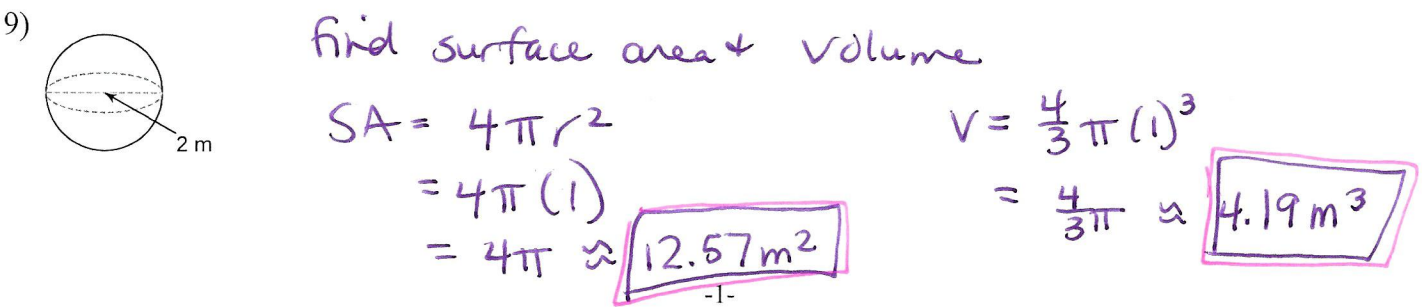 9)
find surface area & volume
2 m
SA = 4πr²
= 4π(1)
= 4π ≈ 12.57m²
V = 4/3 π (1)³
= 4/3π ≈ 4.19m³
-1-